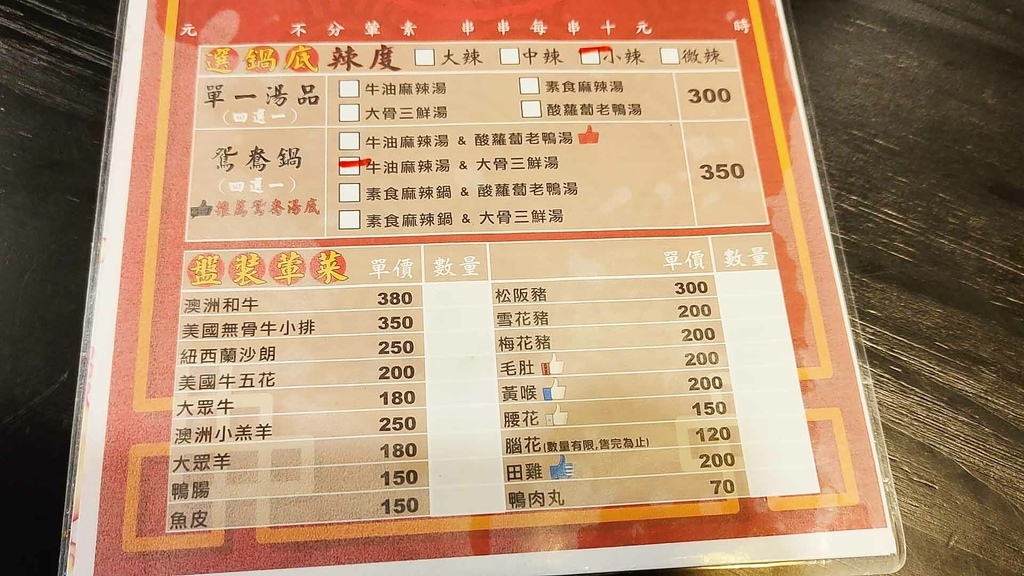 元 不分葷素 串串每串十元 時
選鍋底 辣度 大辣 中辣 小辣 微辣
單一湯品 (四選一) 300
牛油麻辣湯 素食麻辣湯
大骨三鮮湯 酸蘿蔔老鴨湯
鴛鴦鍋 (四選一) 350
推薦鴛鴦湯底
牛油麻辣湯 & 酸蘿蔔老鴨湯
牛油麻辣湯 & 大骨三鮮湯
素食麻辣鍋 & 酸蘿蔔老鴨湯
素食麻辣鍋 & 大骨三鮮湯
盤裝葷菜 單價 數量 單價 數量
澳洲和牛 380 松阪豬 300
美國無骨牛小排 350 雪花豬 200
紐西蘭沙朗 250 梅花豬 200
美國牛五花 200 毛肚 200
大眾牛 180 黃喉 200
澳洲小羔羊 250 腰花 150
大眾羊 180 腦花(數量有限,售完為止) 120
鴨腸 150 田雞 200
魚皮 150 鴨肉丸 70